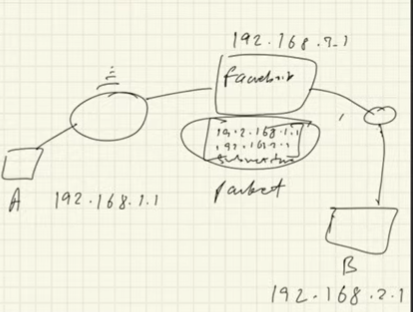 192.168.?.1
facebook
192.168.1.1
packet
A 192.168.1.1
B
192.168.2.1